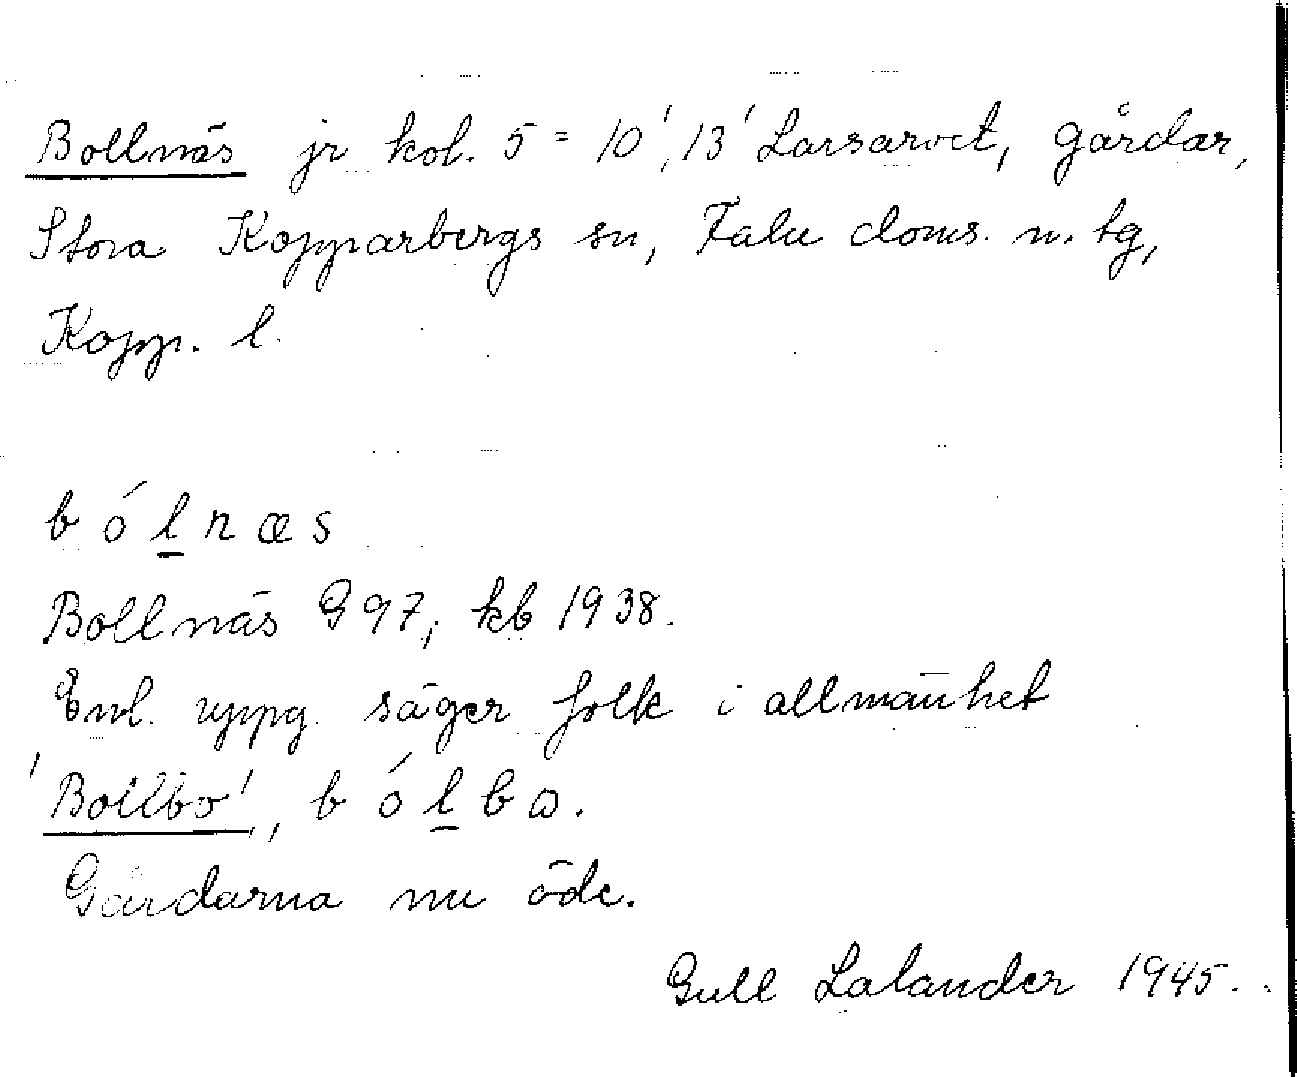 Bollnäs jr kol. 5 = 10', 13' Larsarvet, gårdar,
Stora Kopparbergs sn, Falu doms. n. tg,
Kopp. l.
b ó l n æ s
Bollnäs G 97, kb 1938.
Enl. uppg. säger folk i allmänhet
'Bollbo', b ó l b ω.
Gårdarna nu öde.
Gull Lalander 1945.